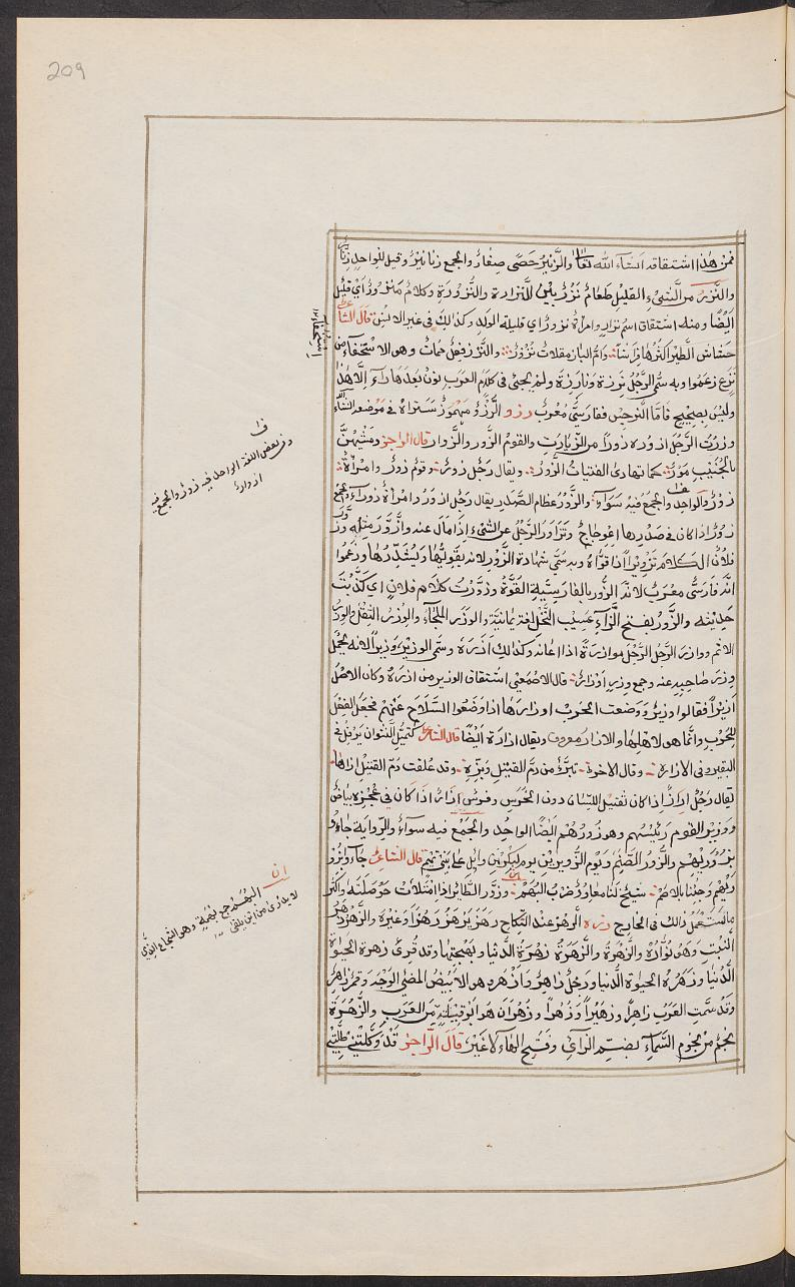 209
فمن هذا اشتقاقه انشاء الله تعالى والزنير حصى صغار والجمع زنانير وقيل للواحد
والنزر من الشيء القليل طعام نزر بيّن النزارة والنزورة وكلام منزور اي قليل
ايضا ومنه اشتقاق اسم نزار وامرأة نزور اي قليلة الولد وكذلك في غير الانس قال الشاعر
خشاش الطير اكثرها فراخا وام الباز مقلات نزور والنزر فعل ممات وهو الاستخفاء من
نزع زعموا وبه سمي الرجل نرزة ونارزة ولم يجئ في كلام العرب نون بعدها راء الا هذا
وليس بصحيح فاما النرجس ففارسي معرب رزو الرزؤ مهموز ستراه في موضعه انشاء الله
وزرت الرجل ازوره زورا من الزيارت والقوم الزور والزوار قال الراجز ومشيهن
بالخبيب مور كما تهادى الفتيات الزور ويقال رجل زور وقوم زور وامرأة
زور والواحد والجمع فيه سواء والزور عظام الصدر يقال رجل ازور وامرأة زوراء والجمع
زور اذا كان في صدرها اعوجاج وتزاور الرجل عن الشيء اذا مال عنه وازور مثله وزور
فلان الكلام تزويرا اذا قواه وبه سمي شهادة الزور لانه يقويها ويشددها وزعموا
انه فارسي معرب لانه الزور بالفارسية القوة وزورت كلام فلان اي كذبت
حديثه والزور بفتح الزاء عسيب النخل لغة يمانية والوزر الملجاء والوزر الثقل والوزر
الاثم ووازر الرجل الرجل موازرة اذا اعانه وكذلك آزره وسمي الوزير وزيرا لانه يحمل
وزر صاحبه عنه وجمع وزير اوزار قال الاصمعي اشتقاق الوزير من ازره وكان الاصل
ازيرا فقالوا وزير ووضعت الحرب اوزارها اذا وضعوا السلاح عنهم فجعل الفعل
للحرب وانما هو لاهلها والازار معروف ويقال ازارة ايضا قال الشاعر كتميل النشوان يرفل في
البقير وفي الازاره وقال الاخر تبرؤ من دم القتيل وبزه وقد علقت دم القتيل ازارها
يقال رجل اذا كان ثقيل اللسان دون الخرس وفرس آزر اذا كان في عجزه بياض
ووزير القوم رئيسهم وهو زورهم ايضا الواحد والجمع فيه سواء والرواية جاءوا
بزوريهم والزور الصنم ويوم الزويرين يوم لبكر بن وائل على بني تميم قال الشاعر جاءوا بزو
ريهم وجئنا بالاصم شيخ لنا معاود ضرب البهم وزور الطائر اذا امتلأت حوصلته واكثر
ما يستعمل ذلك في الجارح رزه الرهز عند النكاح رهز يرهز رهزا وغيره والزهر زهر
النبت وهو نواره والزهرة والزهرة زهرة الدنيا وبهجتها وقد قرئ زهرة الحيوة
الدنيا وزهرة الحيوة الدنيا ورجل زاهر وازهر هو الابيض المضيئ الوجه وقمر زاهر
وقد سمت العرب زاهرا وزهيرا وزهرا وزهران هو ابو قبيلة من العرب والزهرة
نجم من نجوم السماء بضم الزاي وفتح الهاء لا غير قال الراجز قد وكلتني طلتي
استخفاء
وفي بعض اللغة الواحد فيه زور والجمع فيه
ازوار
البهم جمع بهمة وهو الشجاع الذي
لا يدرى من اين يلقى